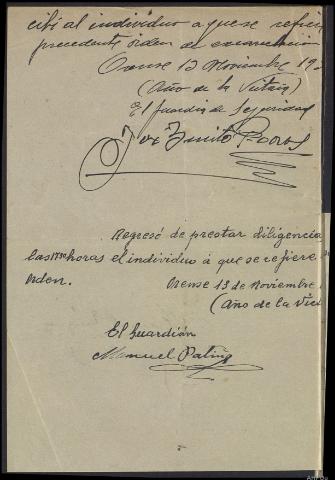 cibí al individuo a que se refiere
precedente órden de excarcelación
Orense 13 Noviembre 19
(Año de la Victoria)
El guardia de Seguridad
Benito
Regresé de prestar diligencia
las 17'30 horas el individuo á que se refiere
orden.
Orense 13 de Noviembre
(Año de la Vict
El Guardián
Manuel Patiño